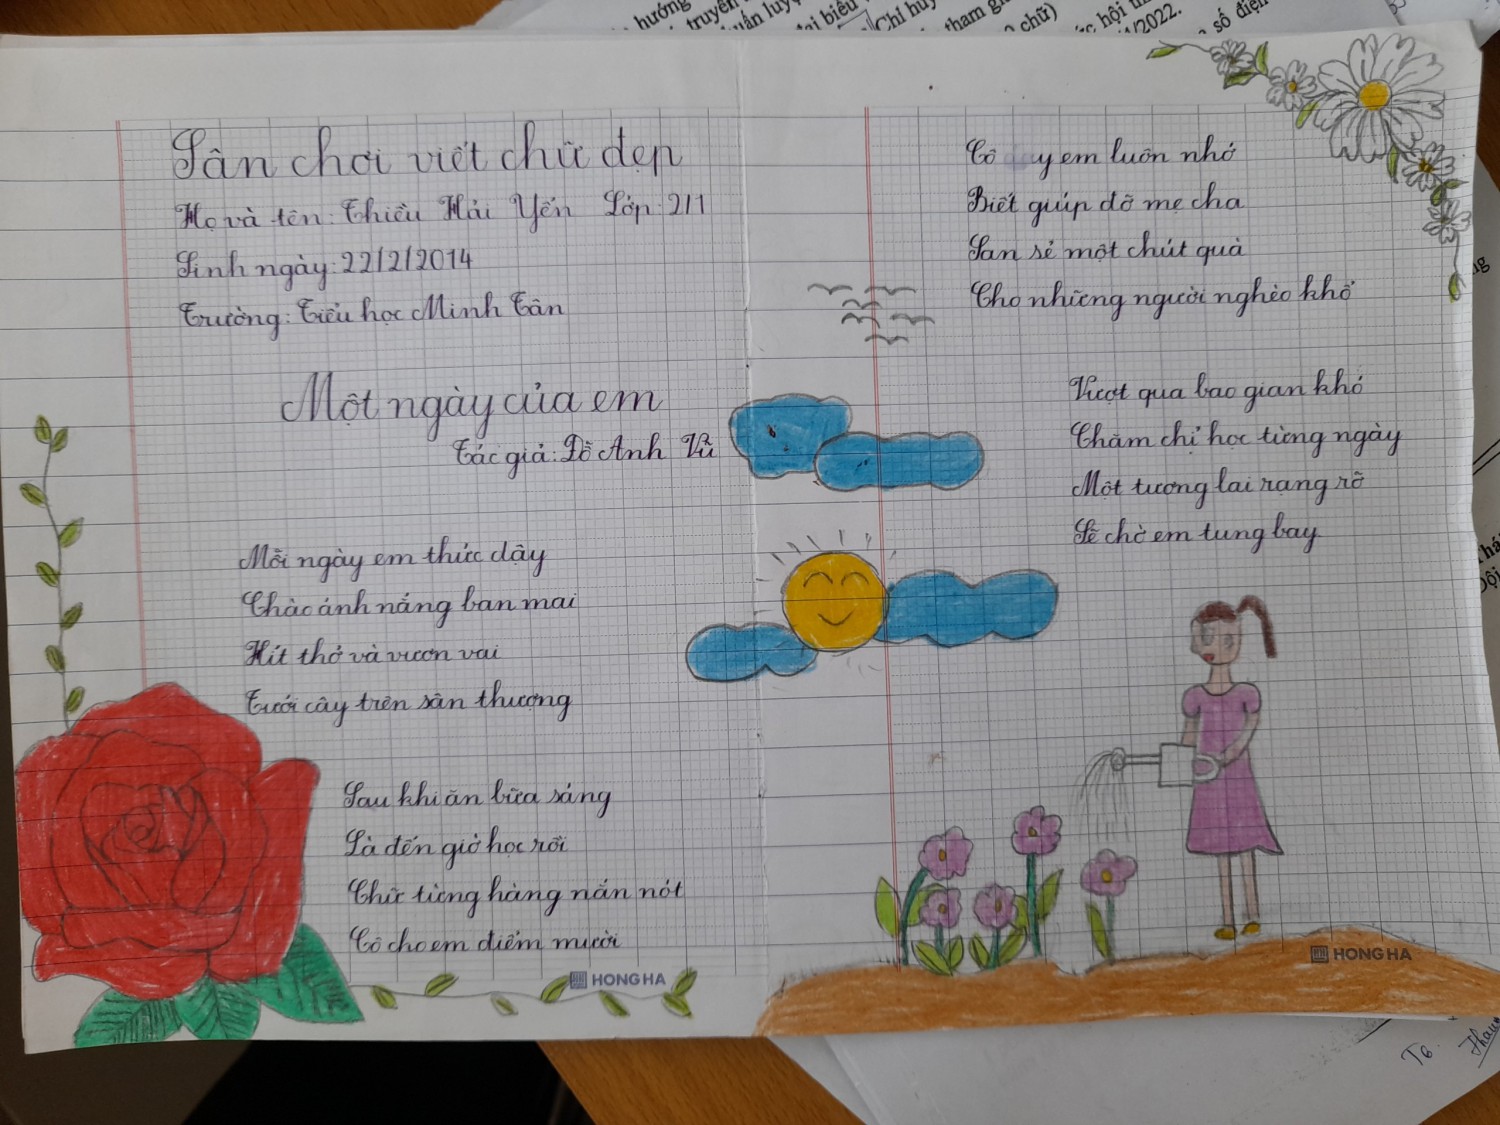 Sân chơi viết chữ đẹp
Họ và tên: Thiều Hải Yến Lớp: 2/1
Sinh ngày: 22/2/2014
Trường: Tiểu học Minh Tân
Một ngày của em
Tác giả: Đỗ Anh Vũ
Mỗi ngày em thức dậy
Chào ánh nắng ban mai
Hít thở và vươn vai
Tưới cây trên sân thượng
Sau khi ăn bữa sáng
Là đến giờ học rồi
Chữ từng hàng nắn nót
Cô cho em điểm mười
HONG HA
Cô dạy em luôn nhớ
Biết giúp đỡ mẹ cha
San sẻ một chút quà
Cho những người nghèo khổ
Vượt qua bao gian khó
Chăm chỉ học từng ngày
Một tương lai rạng rỡ
Sẽ chờ em tung bay
HONG HA
hướng
truyền
đại biểu
Chỉ huy
tham gia
chữ)
hội
/2022.
số điện